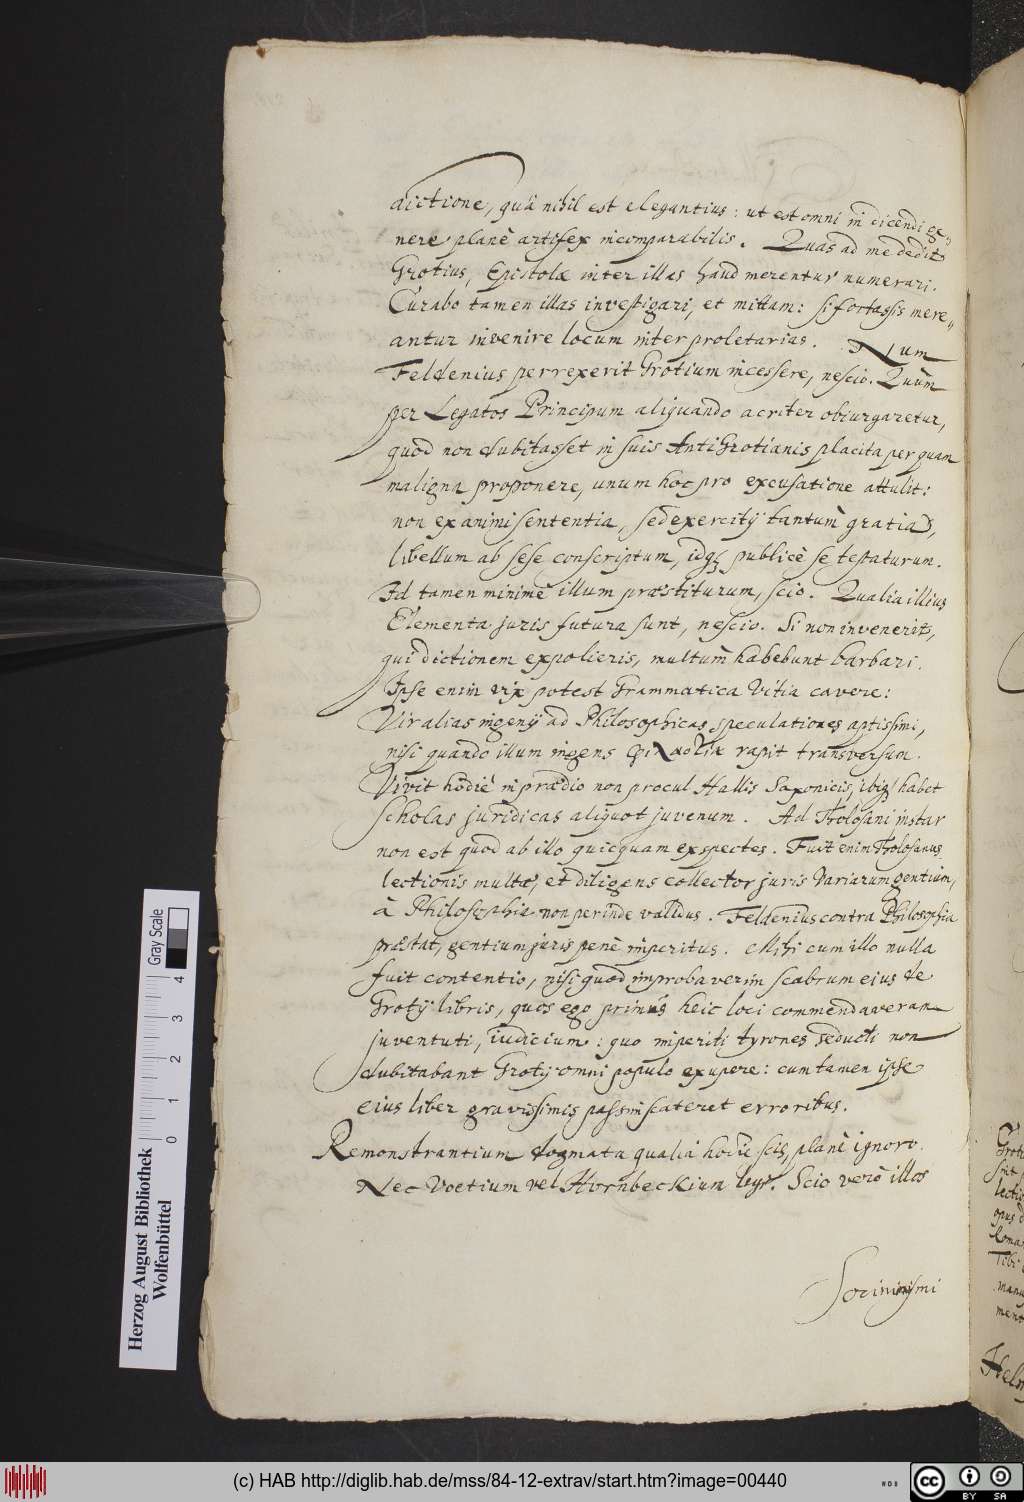 dictione, quâ nihil est elegantius: ut est omni in dicendi ge-
nere planè artifex incomparabilis. Quas ad me dedit
Grotius, Epistolæ inter illas haud merentur numerari.
Curabo tamen illas investigari, et mittam: si fortassis mere-
antur invenire locum inter proletarias. Num
Feldenius perrexerit Grotium incessere, nescio. Quùm
per Legatos Principum aliquando acriter obiurgaretur,
quod non dubitasset in suis AntiGrotianis placita per quam
maligna proponere, unum hoc pro excusatione attulit:
non ex animi sententia, sed exercitij tantùm gratiâ,
libellum ab sese conscriptum, idq; publicè se testaturum.
Id tamen minimè illum præstiturum, scio. Qualia illius
Elementa juris futura sunt, nescio. Si non invenerit,
qui dictionem expolieris, multùm habebunt barbari.
Ipse enim vix potest Grammatica vitia cavere:
Vir alias ingenij ad Philosophicas speculationes aptissimi,
nisi quando illum ingens rapit transversum.
Vivit hodiè in prædio non procul Hallis Saxonicis, ibiq; habet
scholas juridicas aliquot juvenum. Ad Tholosani instar
non est quod ab illo quicquam exspectes. Fuit enim Tholosanus
lectionis multæ, et diligens collector juris variarum gentium,
à Philosophia non perinde validus. Feldenius contra Philosophia
præstat, gentium juris penè imperitus. Mihi cum illo nulla
fuit contentio, nisi quod improbaverim scabrum eius de
Grotij libris, quos ego primus heic loci commendaveram
juventuti, iudicium: quo imperiti tyrones seducti non
dubitabant Grotij omni populo expuere: cum tamen ipse
eius liber gravissimis passim scateret erroribus.
Remonstrantium dogmata qualia hodiè scis, planè ignoro.
Nec Voetium vel Hornbeckium legi. Scio verò illos
Socinismi
Herzog August Bibliothek
Wolfenbüttel
Gray Scale
0 1 2 3 4
(c) HAB http://diglib.hab.de/mss/84-12-extrav/start.htm?image=00440
WDB
cc BY SA